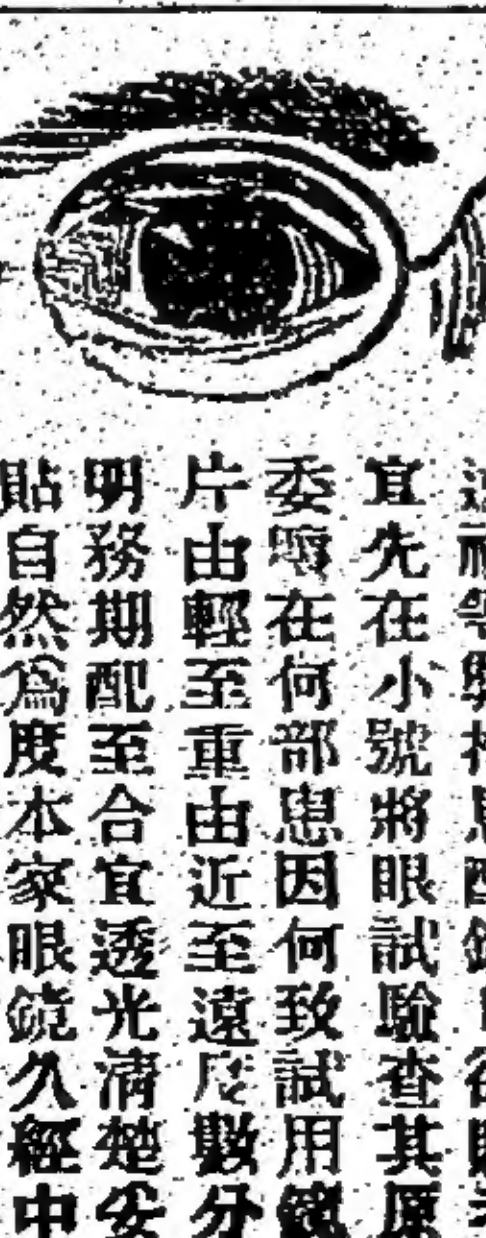 宜先在小號將眼試驗查其原
委壞在何部患因何致試用鏡
片由輕至重由近至遠度數分
明務期配至合宜透光清楚妥
貼自然為度本家眼鏡久經中